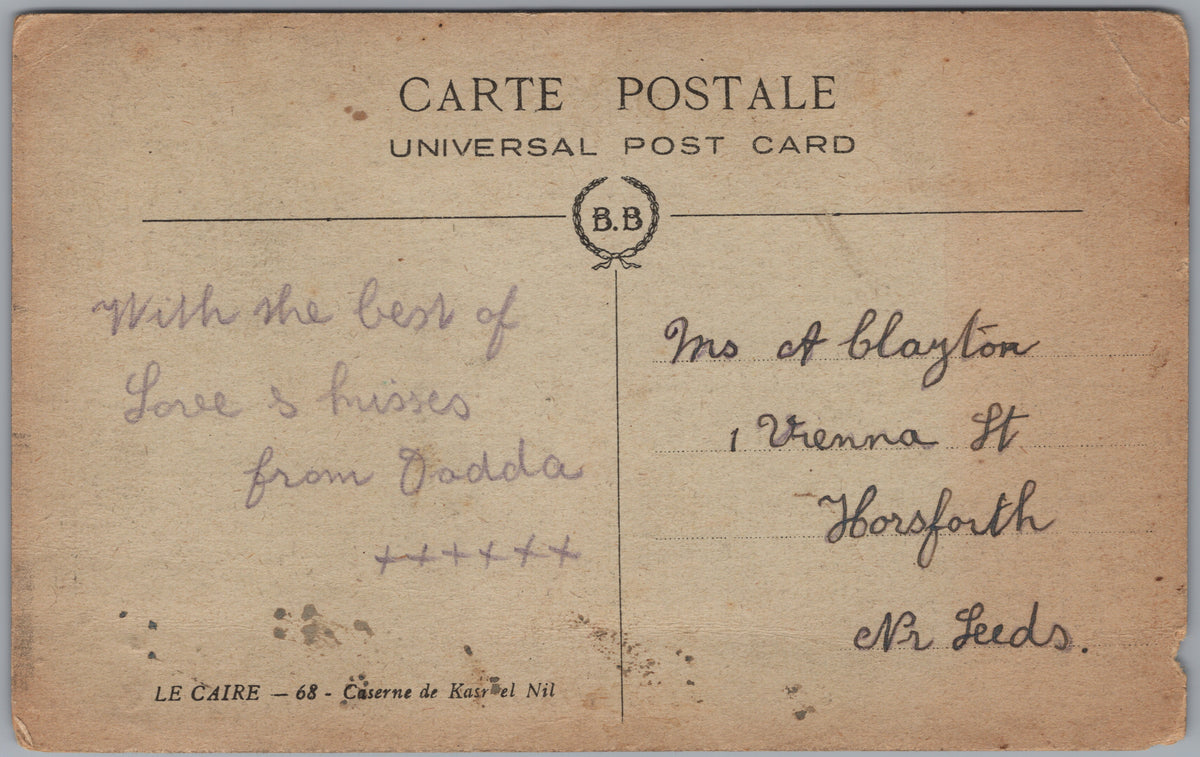 CARTE POSTALE
UNIVERSAL POST CARD
B.B
With the best of
Love & kisses
from Dadda
++++++
Mrs A Clayton
1 Vienna St
Horsforth
Nr Leeds.
LE CAIRE — 68 - Caserne de Kasr el Nil